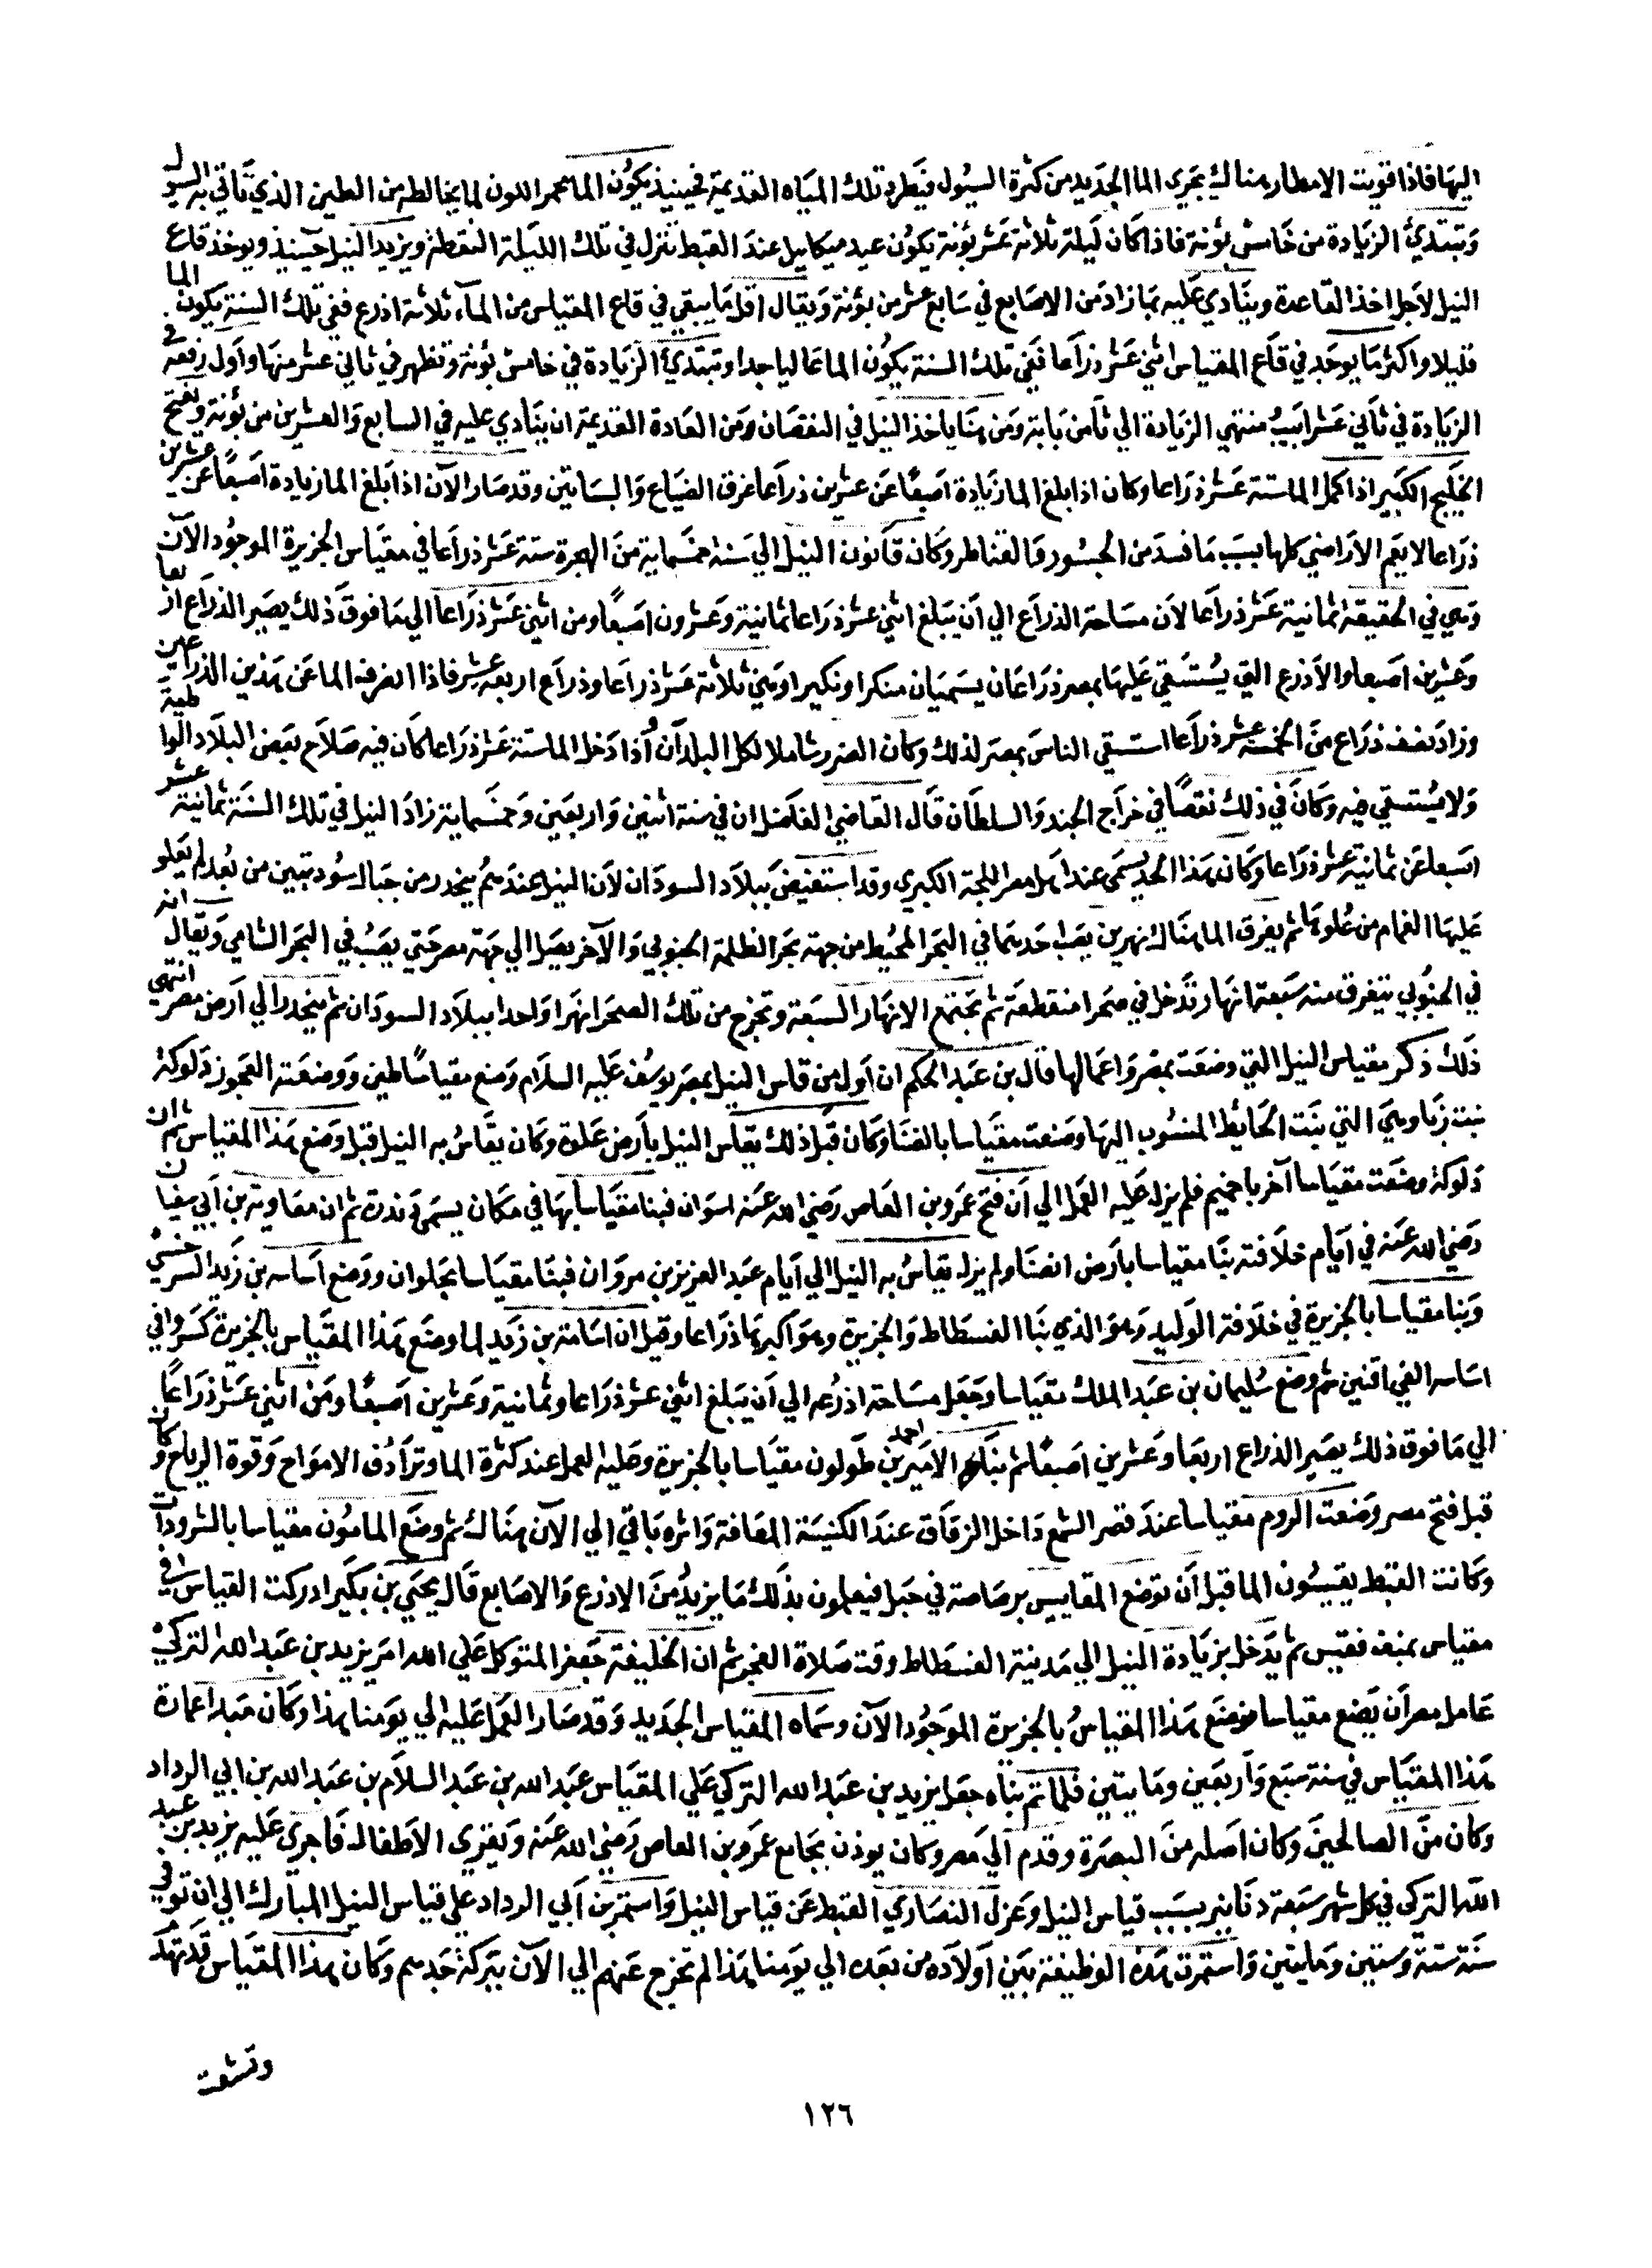 اليها فاذا قويت الامطار هناك يجري الما الجديد من كثرة السيول فيطرد تلك المياه القديمة فحينيذ يكون الما محمر اللون لما يخالطه من الطين الذي تاتي به السيول
وتبتدئ الزيادة من خامس بؤنة فاذا كان ليلة ثلاثة عشر بؤنة يكون عيد ميكاييل عند القبط تنزل في تلك الليلة النقطة ويزيد النيل حينيذ ويوخذ قاع
النيل لاجل اخذ القاعدة وينادي عليه بما زاد من الاصابع في سابع عشر من بؤنة ويقال اقل ما يبقي في قاع المقياس من الماء ثلاثة اذرع ففي تلك السنة يكون الما
قليلا واكثر ما يوجد في قاع المقياس اثني عشر ذراعا ففي تلك السنة يكون الما عاليا جدا وتبتدئ الزيادة في خامس بؤنة وتظهر في ثاني عشر منها واول دفعة في
الزيادة في ثاني عشر ابيب منتهي الزيادة الي ثامن بابة ومن هنا ياخذ النيل في النقصان ومن العادة القديمة ان ينادي عليه في السابع والعشرين من بؤنة ويفتح
الخليج الكبير اذا كمل الما ستة عشر ذراعا وكان اذا بلغ الما زيادة اصبعا عن عشرين ذراعا غرق الضياع والبساتين وقد صار الآن اذا بلغ الما زيادة اصبعا عن عشرين
ذراعا لا يعم الاراضي كلها بسبب ما فسد من الجسور والقناطر وكان قانون النيل الي سنة خمسماية من الهجرة ستة عشر ذراعا في مقياس الجزيرة الموجود الآن
وهي في الحقيقة ثمانية عشر ذراعا لان مساحة الذراع الي ان يبلغ اثني عشر ذراعا ثمانية وعشرون اصبعا ومن اثني عشر ذراعا الي ما فوق ذلك يصير الذراع اربعا
وعشرين اصبعا والاذرع التي يستسقي عليها بمصر ذراعان يسميان منكرا ونكيرا وهي ثلاثة عشر ذراعا وذراع اربعة عشر فاذا انصرف الما عن هذين الذراعين
وزاد نصف ذراع من الخمسة عشر ذراعا استسقي الناس بمصر لذلك وكان الضرر شاملا لكل البلدان واذا دخل الما ستة عشر ذراعا كان فيه صلاح بعض البلاد الواطية
ولا يستسقي فيه وكان في ذلك نقصا في خراج الجند والسلطان قال القاضي الفاضل ان في سنة اثنين واربعين وخمسماية زاد النيل في تلك السنة ثمانية عشر
اصبعا عن ثمانية عشر ذراعا وكان هذا الحد يسمي عند اهل مصر اللجة الكبري وقد استفيض ببلاد السودان لان النيل عندهم ينحدر من جبال سود تبين من بعد لم يعلو
عليها الغمام من علوها ثم يفرق الما هناك نهرين يصب احدهما في البحر المحيط من جهة بحر الظلمة الجنوبي والآخر يصل الي جهة مصر حتي يصب في البحر الشامي ويقال انه
في الجنوبي يتفرق منه سبعة انهار تدخل في صحرا منقطعة ثم تجتمع الانهار السبعة وتخرج من تلك الصحرا نهرا واحدا ببلاد السودان ثم ينحدر الي ارض مصر انتهي
ذلك ذكر مقياس النيل التي وضعت بمصر واعمالها قال بن عبد الحكم ان اول من قاس النيل بمصر يوسف عليه السلام وضع مقياسا طين ووضعته العجوز دلوكة
بنت زبا وهي التي بنت الحايط المنسوب اليها وضعت مقياسا بالفنا وكان قبل ذلك يقاس النيل بارض علوة وكان يقاس به النيل قبل وضع هذا المقياس ثم ان
دلوكة وضعت مقياسا آخر باخميم فلم يزل عليه العمل الي ان فتح عمرو بن العاص رضي الله عنه اسوان فبنا مقياسا بها في مكان يسمي دندرة ثم ان معاوية بن ابي سفيان
رضي الله عنه في ايام خلافته بنا مقياسا بارض انصنا ولم يزل يقاس به النيل الي ايام عبد العزيز بن مروان فبنا مقياسا بحلوان ووضع اساسه بن زيد
وبنا مقياسا بالجزيرة في خلافة الوليد وهو الذي بنا الفسطاط والجزيرة وهو اكبرها ذراعا وقيل ان اسامة بن زيد لما وضع هذا المقياس بالجزيرة كسر وافي
اساسه الفي اقنين ثم وضع سليمان بن عبد الملك مقياسا وجعل مساحة اذرعه الي ان يبلغ اثني عشر ذراعا وثمانية وعشرين اصبعا ومن اثني عشر ذراعا
الي ما فوق ذلك يصير الذراع اربعا وعشرين اصبعا ثم بنا الامير احمد بن طولون مقياسا بالجزيرة وعليه العمل عند كثرة الما وترادف الامواج وقوة الرياح وكان
قبل فتح مصر وضعت الروم مقياسا عند قصر الشمع داخل الزقاق عند الكنيسة المعافة واثره باقي الي الآن هناك ثم وضع المامون مقياسا بالشرودات
وكانت القبط يقيسون الما قبل ان توضع المقاييس برصاصة في حبل فيعلمون بذلك ما يزيد من الاذرع والاصابع قال يحيي بن بكير ادركت القياس في
مقياس بمنف فقيس ثم يدخل بزيادة النيل الي مدينة الفسطاط وقت صلاة الفجر ثم ان الخليفة جعفر المتوكل علي الله امر يزيد بن عبد الله التركي
عامل مصر ان يضع مقياسا فوضع هذا المقياس بالجزيرة الموجود الآن وسماه المقياس الجديد وقد صار العمل عليه الي يومنا هذا وكان مبدا عمارة
هذا المقياس في سنة سبع واربعين ومايتين فلما تم بناه جعل يزيد بن عبد الله التركي علي المقياس عبد الله بن عبد السلام بن عبد الله بن ابي الرداد
وكان من الصالحين وكان اصله من البصرة وقدم الي مصر وكان يوذن بجامع عمرو بن العاص رضي الله عنه ويقري الاطفال فاجري عليه يزيد بن عبد
الله التركي في كل شهر سبعة دنانير بسبب قياس النيل وعزل النصاري القبط عن قياس النيل واستمر بن ابي الرداد علي قياس النيل المبارك الي ان توفي في
سنة ستة وستين ومايتين واستمرت هذه الوظيفة بين اولاده من بعده الي يومنا هذا لم تخرج عنهم الي الآن ببركة جدهم وكان هذا المقياس قد تهدم
وتشعت
١٢٦